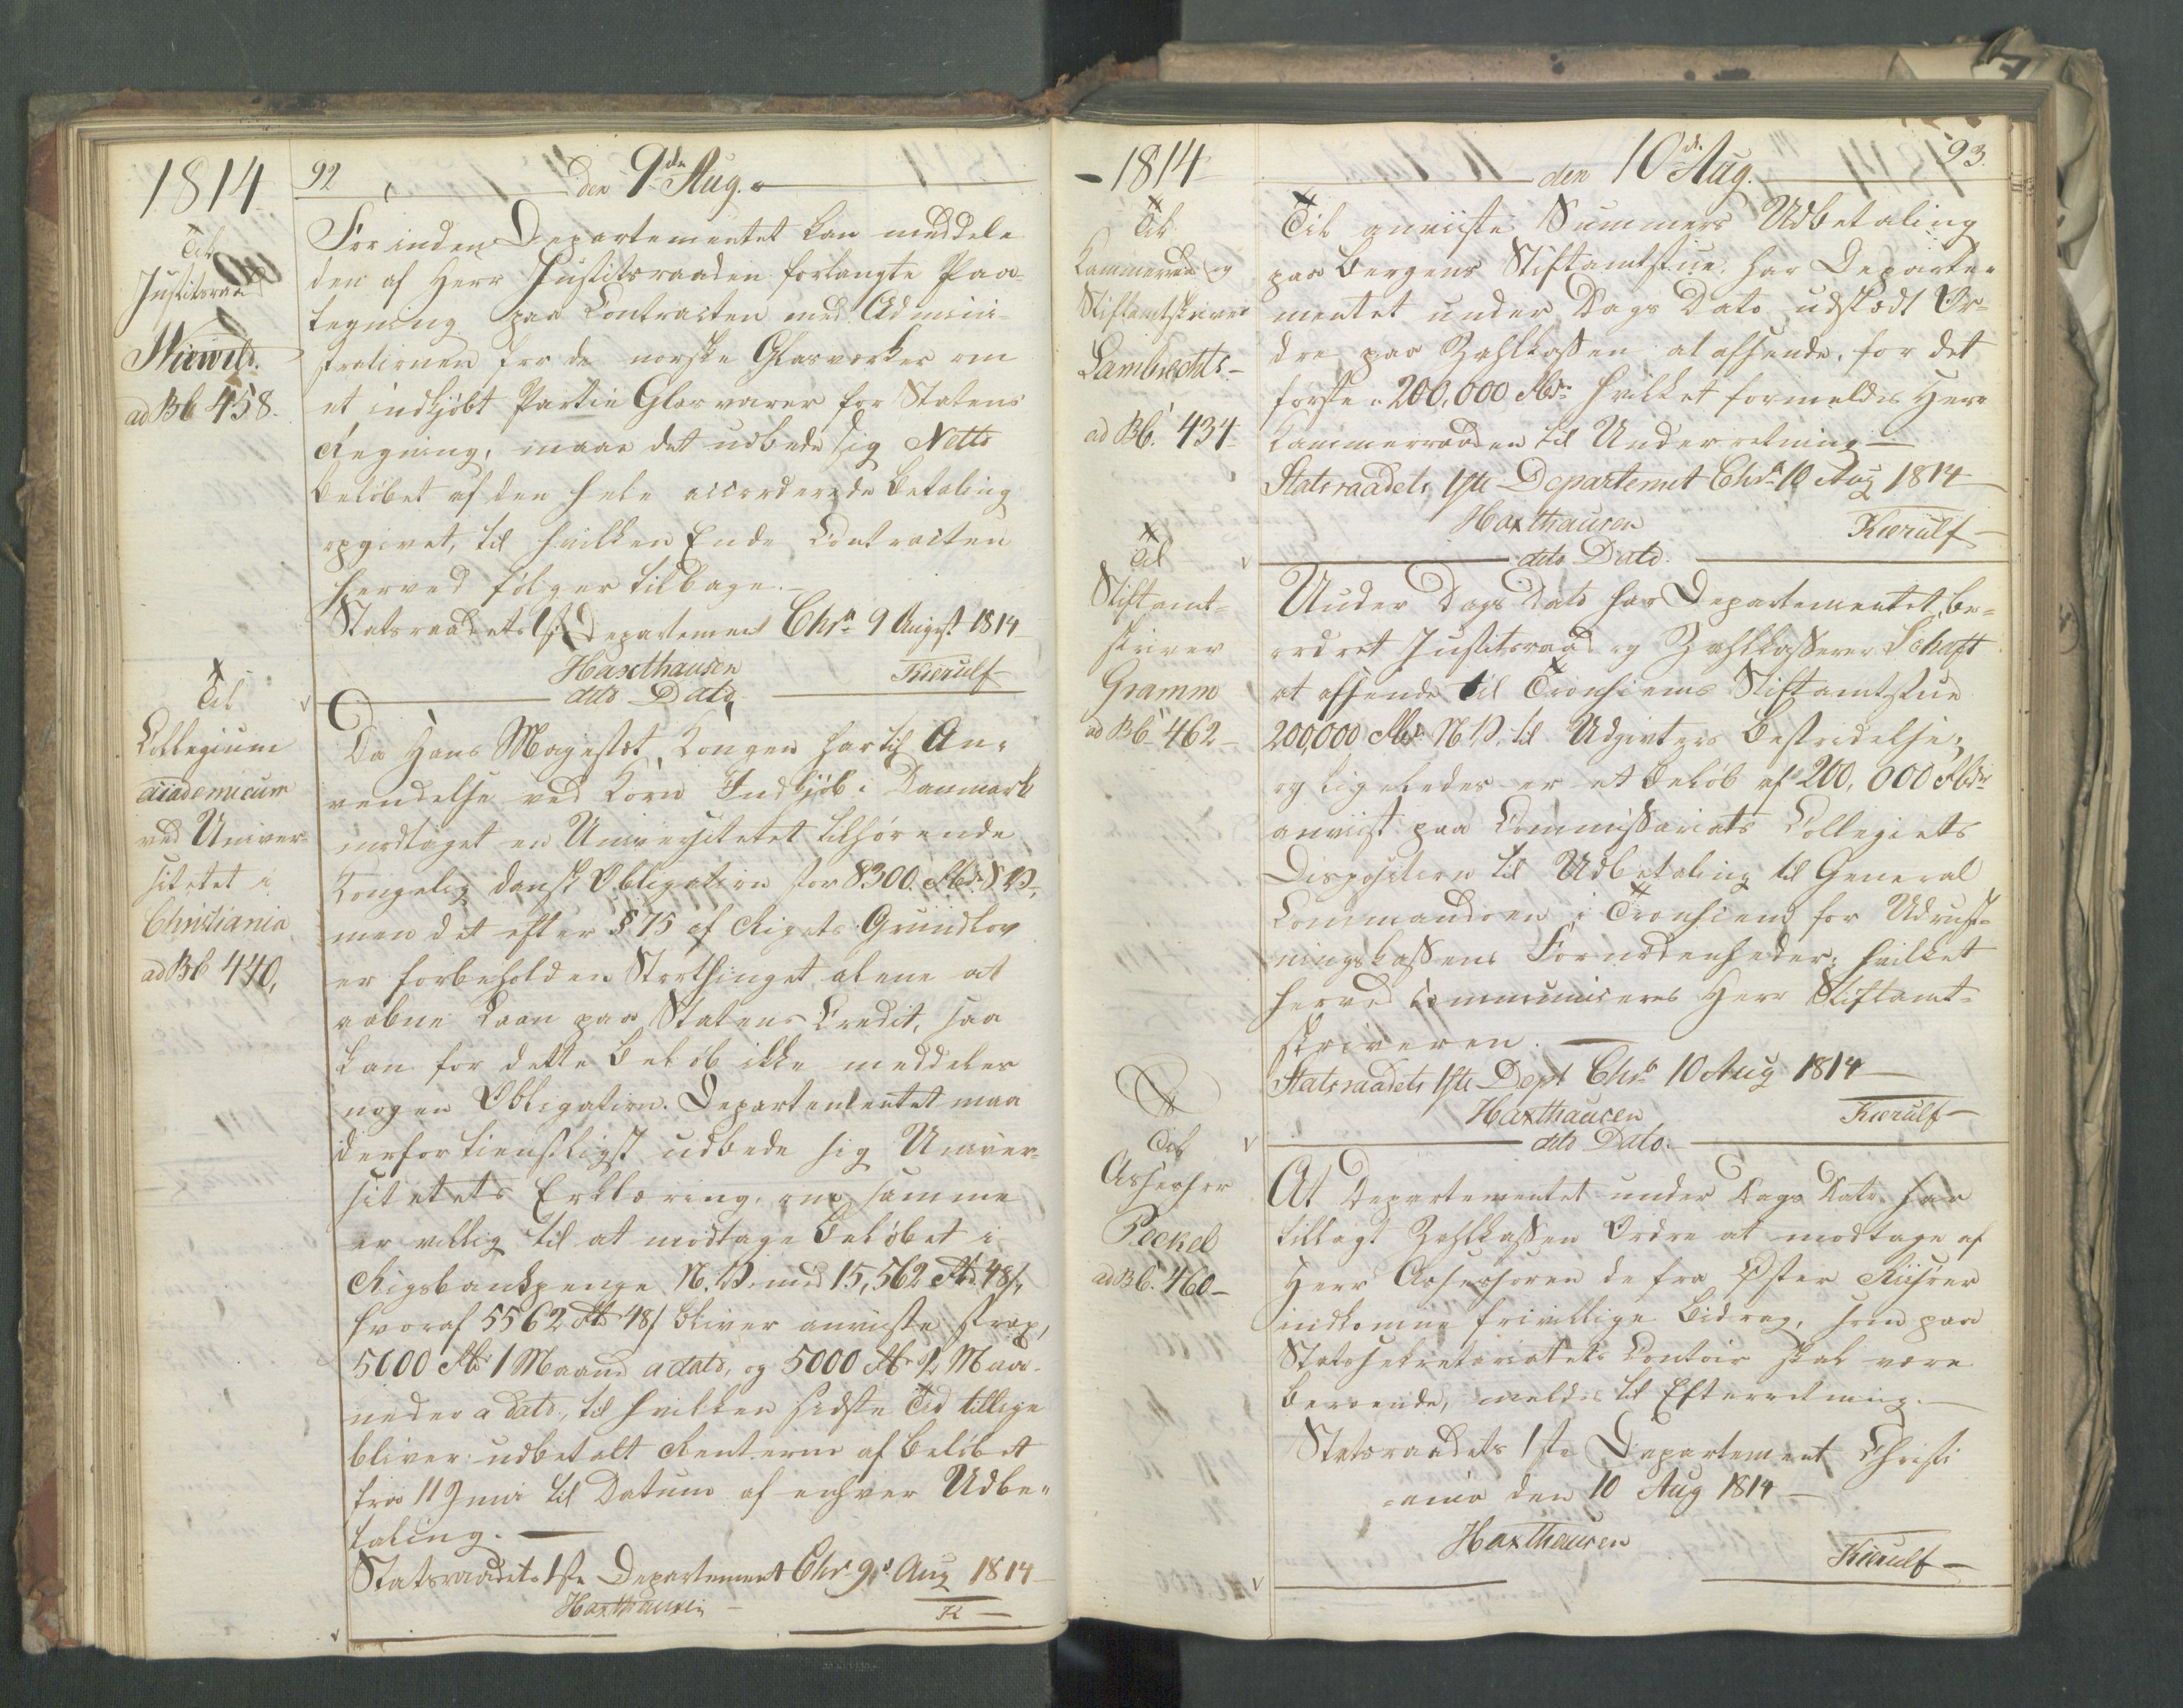 1814
92
den 9de Aug.
Til
Justitsraad
ad Bb 458.
Før inden Departementet kan meddele
den af Herr Justitsraaden forlangte Paa-
tegning paa Contracten med Admini-
strationen for de norske Glasværker om
et indkjøbt Partie Glasvarer for Statens
Regning, maae det udbede sig Netto
Beløbet af den hele accorderede Betaling
opgivet, til hvilken Ende Contracten
herved følger tilbage.
Statsraadets 1ste Departement Chra 9 August 1814
Haxthausen Kierulf
dito Dato
Til
Collegium
academicum
ved Univer-
sitetet i
Christiania
ad Bb 440,
Da Hans Majestæt Kongen har til An-
vendelse ved Korn Indkjøb i Danmark
modtaget en Universitetet tilhørende
Kongelig dansk Obligation stor 8300 Rbdr S.V.
men det efter § 75 af Rigets Grundlov
er forbeholden Storthinget alene at
aabne Laan paa Statens Credit, saa
kan for dette Beløb ikke meddeles
nogen Obligation. Departementet maa
derfor tienstligst udbede sig Univer-
sitetets Erklæring, om samme
er villig til at modtage Beløbet i
Rigsbankpenge N.V. med 15,562 Rbd 48 s,
hvoraf 5562 Rbd 48 s bliver anviiste strax,
5000 Rbd 1 Maaned a dato, og 5000 Rbd 2 Maa-
neder a dato, til hvilken sidste Tid tillige
bliver udbetalt Renterne af Beløbet
fra 11 Juni til Datum af enhver Udbe-
taling.
Statsraadets 1ste Departement Chra 9de Aug 1814
Haxthausen K
1814
den 10de Aug.
93.
Til
Kammerraad og
Stiftamtskriver
Lambrechts
ad Bb. 434
Til anviiste Summers Udbetaling
paa Bergens Stiftamtstue, har Departe-
mentet under Dags Dato udstædt Or-
dre paa Zahlkassen at afsende, for det
første 200,000 Rbdr hvilket formeldes Herr
Kammerraaden til Underretning
Statsraadets 1ste Departemet Chra 10 Aug 1814
Haxthausen Kierulf
dito Dato.
Til
Stiftamt-
skriver
Gramm
ad Bb 462
Under Dags Dato har Departementet be-
ordret Justitsraad og Zahlkasserer Schaft
at afsende til Tronhiems Stiftamtstue
200,000 Rbr N.V. til Udgivters Bestridelse;
og ligeledes er et Beløb af 200,000 Rbdr
anviist paa Commissariats Collegiets
Disposition til Udbetaling til General
Commandoen i Tronhiem for Udrust-
ningskassens Fornødenheder; hvilket
herved communiceres Herr Stiftamt-
skriveren.
Statsraadets 1ste Dept Chra 10 Aug 1814
Haxthausen Kierulf
dito Dato.
Til
Assessor
Peckel
ad Bb. 460
At Departementet under Dags Dato har
tillagt Zahlkassen Ordre at modtage af
Herr Assessoren de fra Øster Riisøer
indkomne frivillige Bidrag, som paa
Statssekretariatets Contoir skal være
beroende, meldes til Efterretning.
Statsraadets 1ste Departement Christi
-ania den 10 Aug 1814
Haxthausen
Kierulf